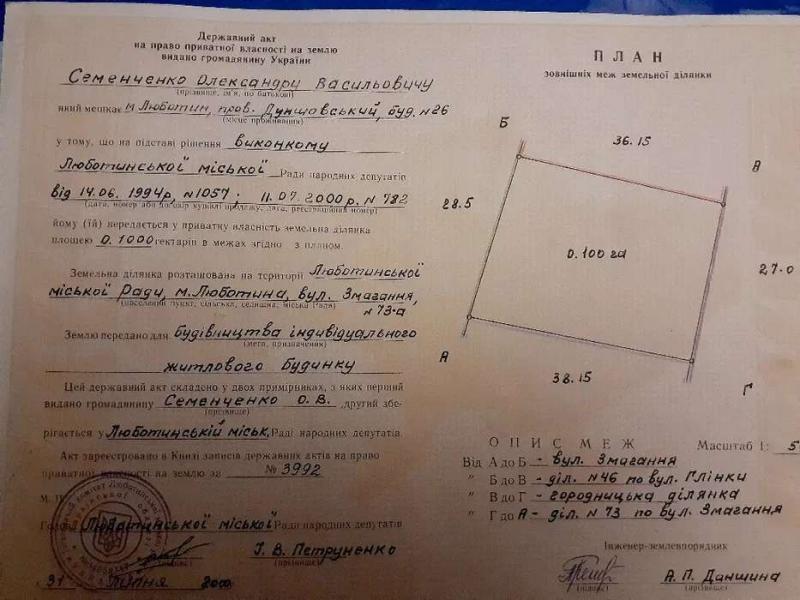 Державний акт
на право приватної власності на землю
видано громадянину України
Семенченко Олександру Васильовичу
(прізвище, ім'я, по батькові)
який мешкає м Люботин, пров. Дуншовський, буд. №26
(місце проживання)
у тому, що на підставі рішення виконкому
Люботинської міської Ради народних депутатів
від 14.06. 1994р, №1057; 11.07.2000р. №782
(дата, номер або договір купівлі продажу, дата, реєстраційний номер)
йому (їй) передається у приватну власність земельна ділянка
площею 0.1000 гектарів в межах згідно з планом.
Земельна ділянка розташована на території Люботинської
міської Ради, м.Люботина, вул. Змагання,
(населений пункт, сільська, селищна, міська Рада)
№73-а
Землю передано для будівництва індивідуального
(мета, призначення)
житлового будинку
Цей державний акт складено у двох примірниках, з яких перший
видано громадянину Семенченко О.В. ,другий збе-
(прізвище)
рігається у Люботинській міськ. Раді народних депутатів.
Акт зареєстровано в Книзі записів державних актів на право
приватної власності на землю за № 3992
М. П.
Голова Люботинської міської Ради народних депутатів
І. В. Петруненко
(прізвище)
31 липня 2000
ПЛАН
зовнішніх меж земельної ділянки
Б
36.15
В
28.5
0.100 га
27.0
А
38.15
Г
ОПИС МЕЖ Масштаб 1: 5
Від А до Б - вул. Змагання
" Б до В - діл. №46 по вул. Глінки
" В до Г - городницька ділянка
" Г до А - діл. №73 по вул. Змагання
Інженер-землевпорядник
А.П. Даншина
(підпис) (прізвище)